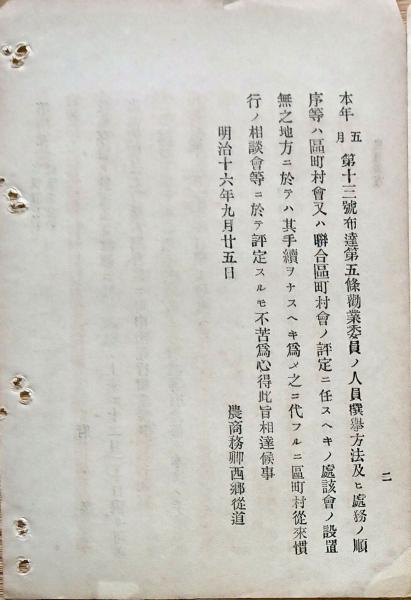 本年五月第十三號布達第五條勸業委員ノ人員撰擧方法及ヒ處務ノ順
序等ハ區町村會又ハ聯合區町村會ノ評定ニ任スヘキノ處該會ノ設置
無之地方ニ於テハ其手續ヲナスヘキ爲メ之ニ代フルニ區町村從來慣
行ノ相談會等ニ於テ評定スルモ不苦爲心得此旨相達候事
明治十六年九月廿五日
農商務卿西鄕從道
二